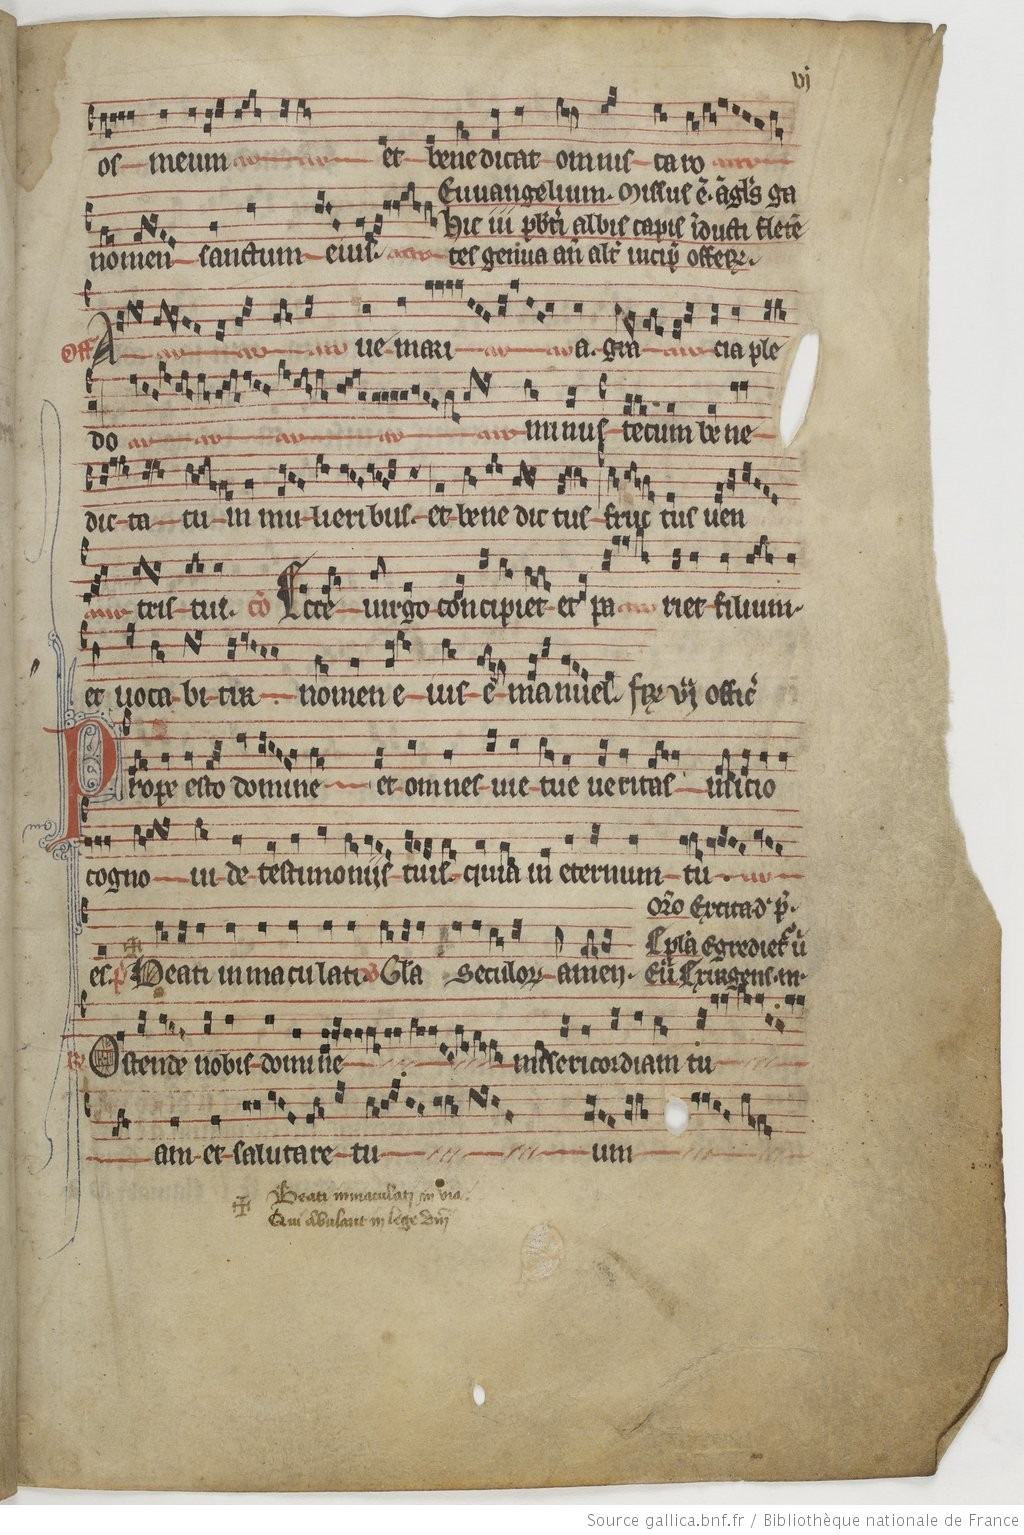 vj
os meum et benedicat omnis caro
Euuangelium. Missus ẽ. ãgl's ga
hic iii p̄br̄i albis capis īduti flet̄e
nomen sanctum eius. tes genua an̄ alt̄ incip̄ offeꝝ.
Off A ue mari a. gra cia ple
do minus tecum be ne
dic ta tu in mu lieribus. et bene dic tus fruc tus uen
tris tui. cõ Ecce uirgo concipiet et pa riet filium
et uoca bi tur nomen e ius e manuel. offic̄
Prope esto domine et omnes uie tue ueritas inicio
cogno ui de testimoniis tuis. quia in eternum tu
or̃o Excita. d' p̄.
Ep̄la Egrediet̃ ũ
es. p̄ Beati inmaculati. Gl̃a seculoꝝ amen. Eũ Exurgens. m.
℟ Ostende nobis domine misericordiam tu
am et salutare tu um
Beati inmaculati in via.
Qui abulant in lege dn̄i
Source gallica.bnf.fr / Bibliothèque nationale de France